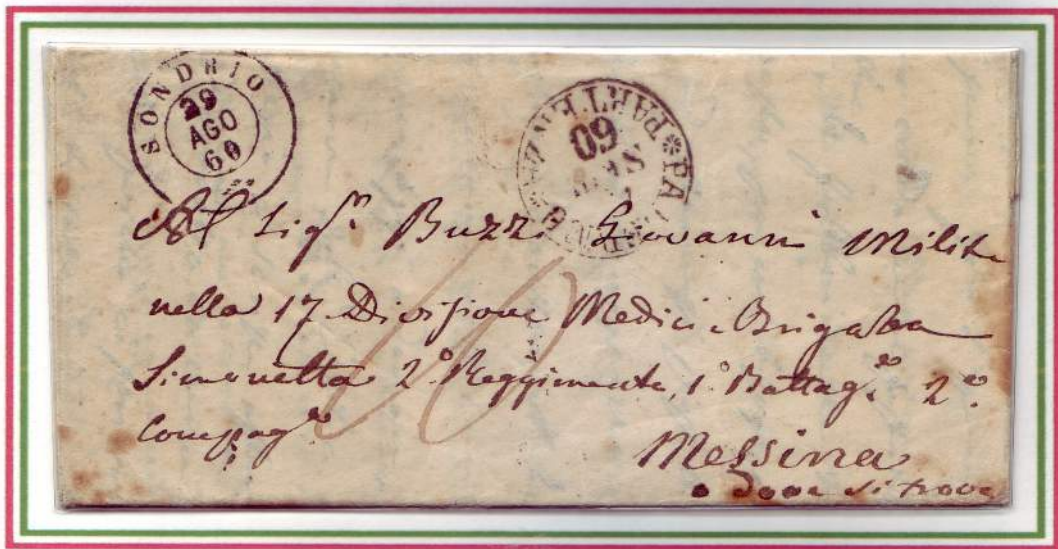 SONDRIO
29
AGO
60
PARTENZA
60
Al Sigʳ Buzzi Giovanni Milite
nella 17 Divisione Medici Brigata
Simonetta 2º Reggimento, 1º Battagᵉ 2ª
Compagᵃ
Messina
o dove si trova